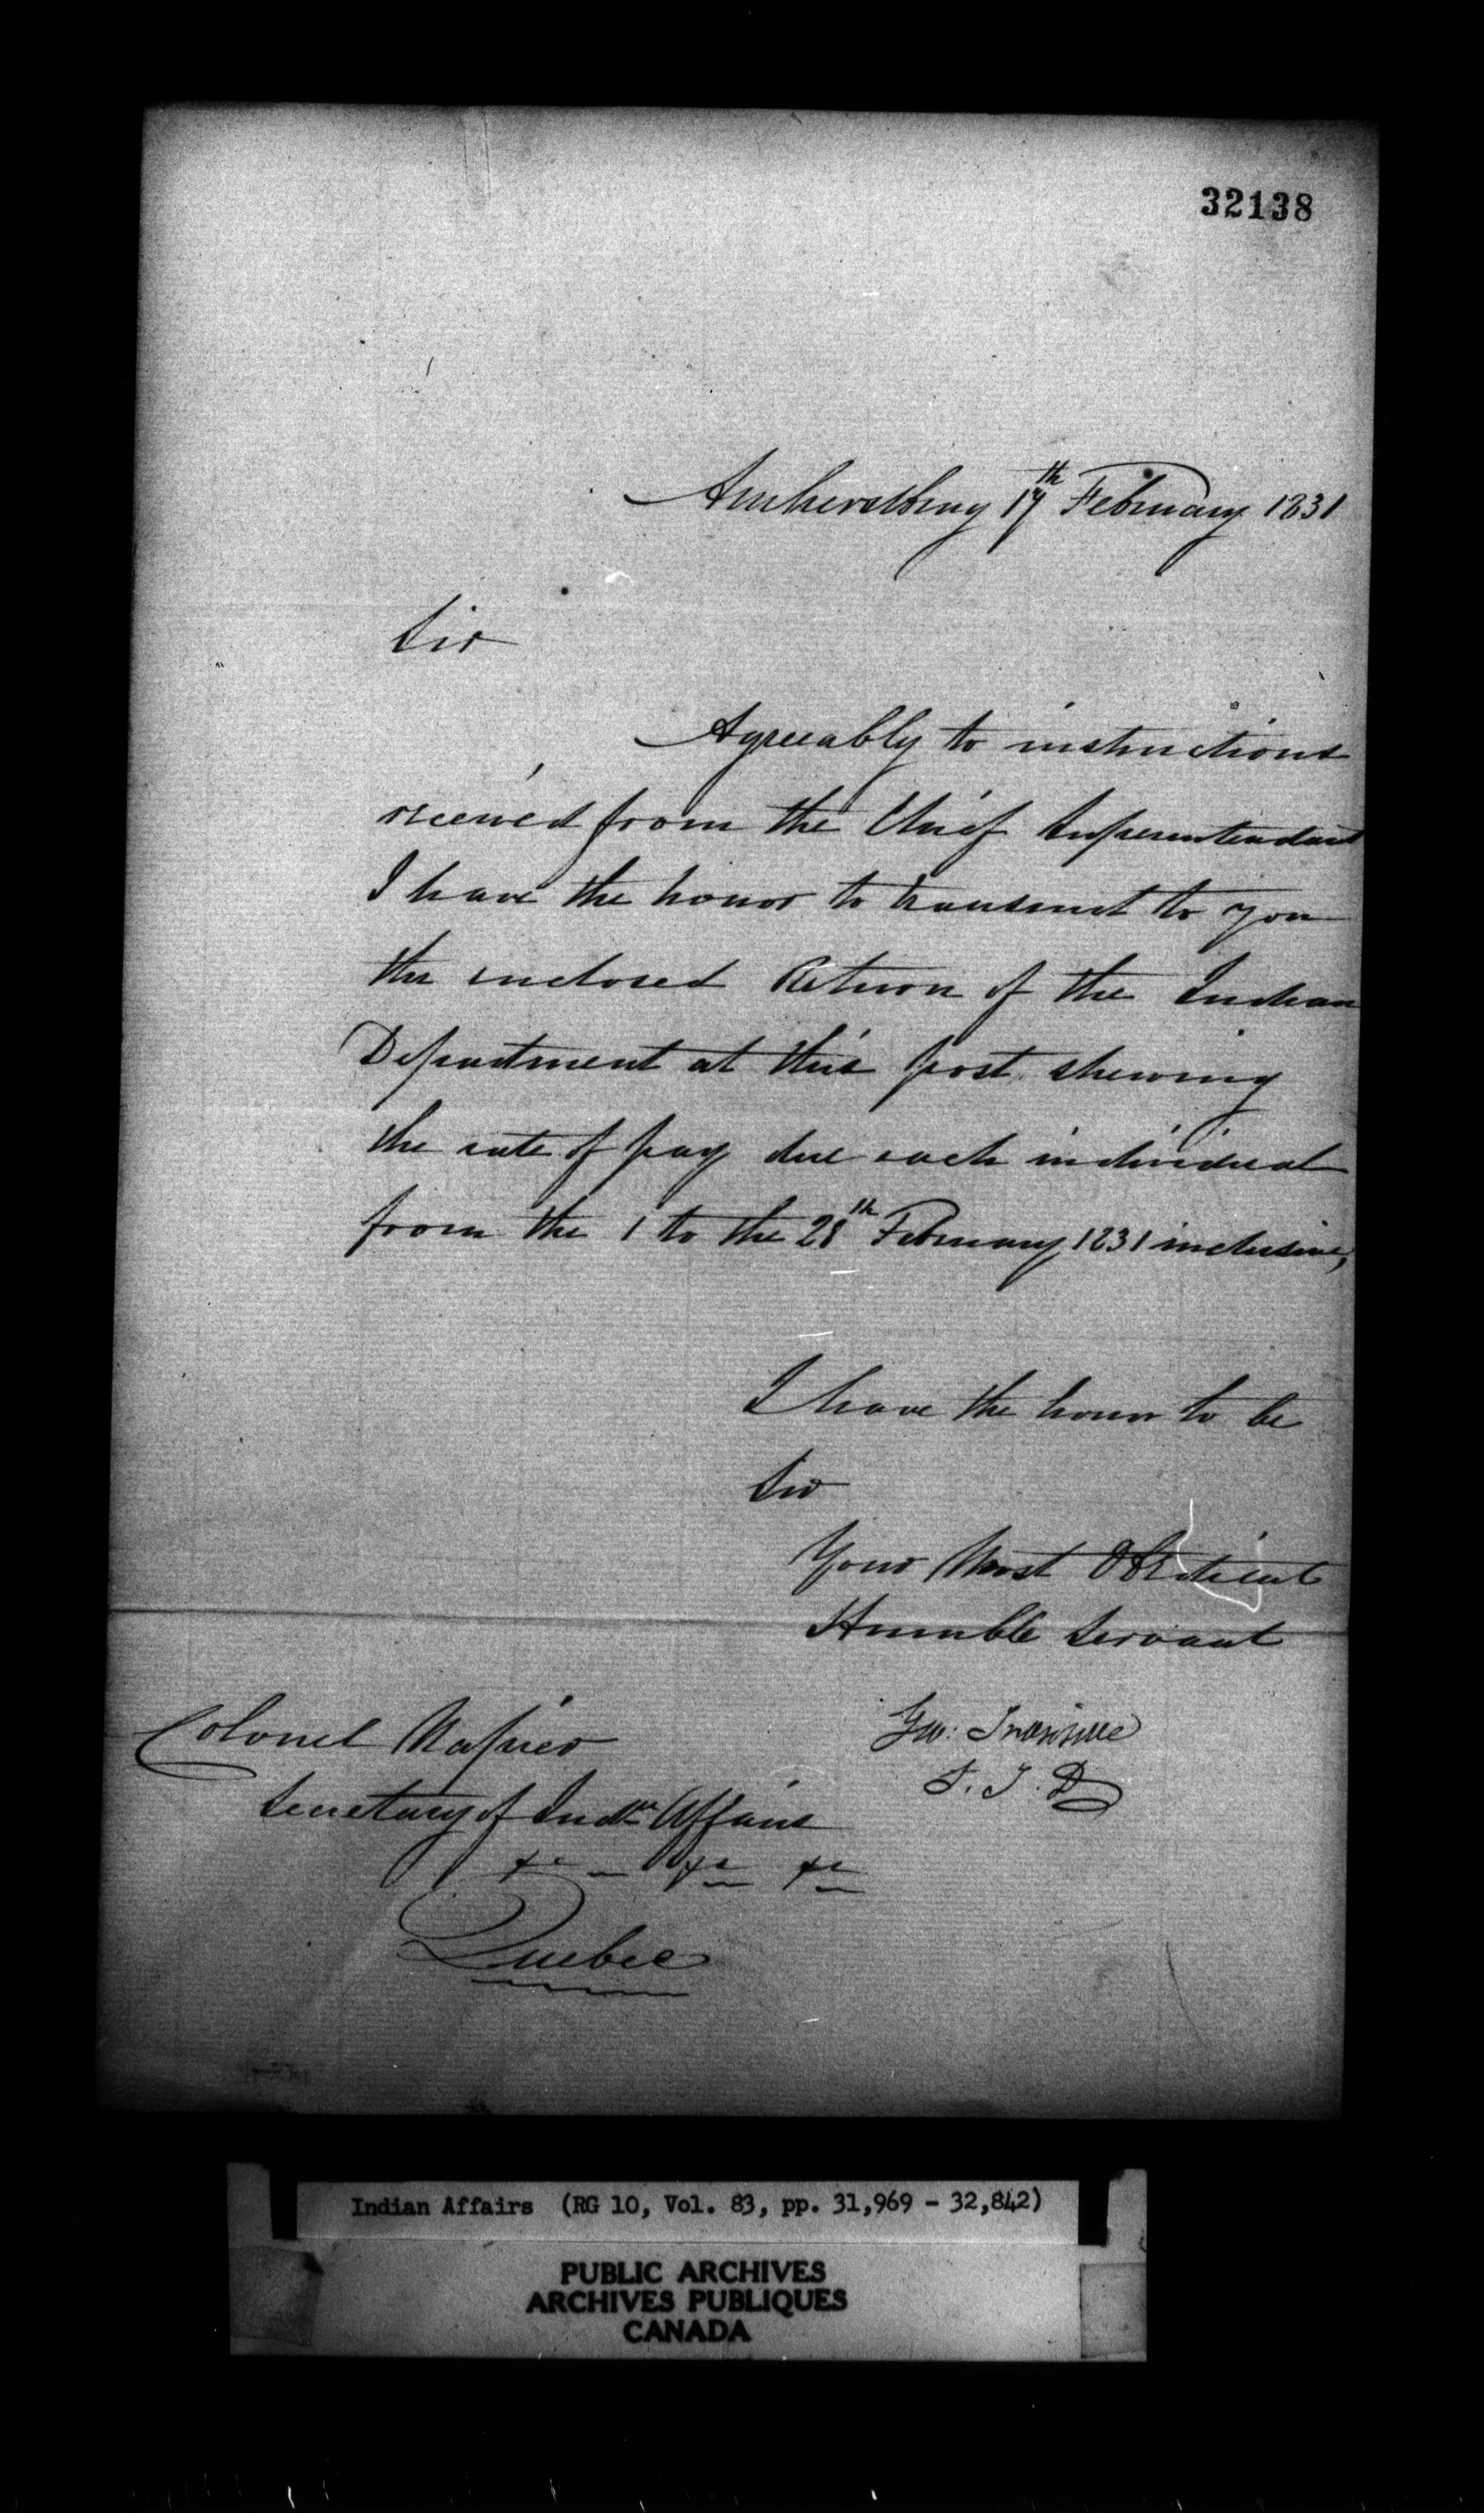 32138
Amherstburg 17th February 1831
Sir
Agreeably to instructions
received from the Chief Superintendant
I have the honor to transmit to you
the enclosed Return of the Indian
Department at this post shewing
the rate of pay due each individual
from the 1 to the 28th February 1831 inclusive,
I have the honor to be
Sir
Your Most Obedient
Humble Servant
Geo: Ironside
S. I. D
Colonel Napier
Secretary of Indn Affairs
&c &c &c
Quebec
Indian Affairs (RG 10, Vol. 83, pp. 31,969 - 32,842)
PUBLIC ARCHIVES
ARCHIVES PUBLIQUES
CANADA